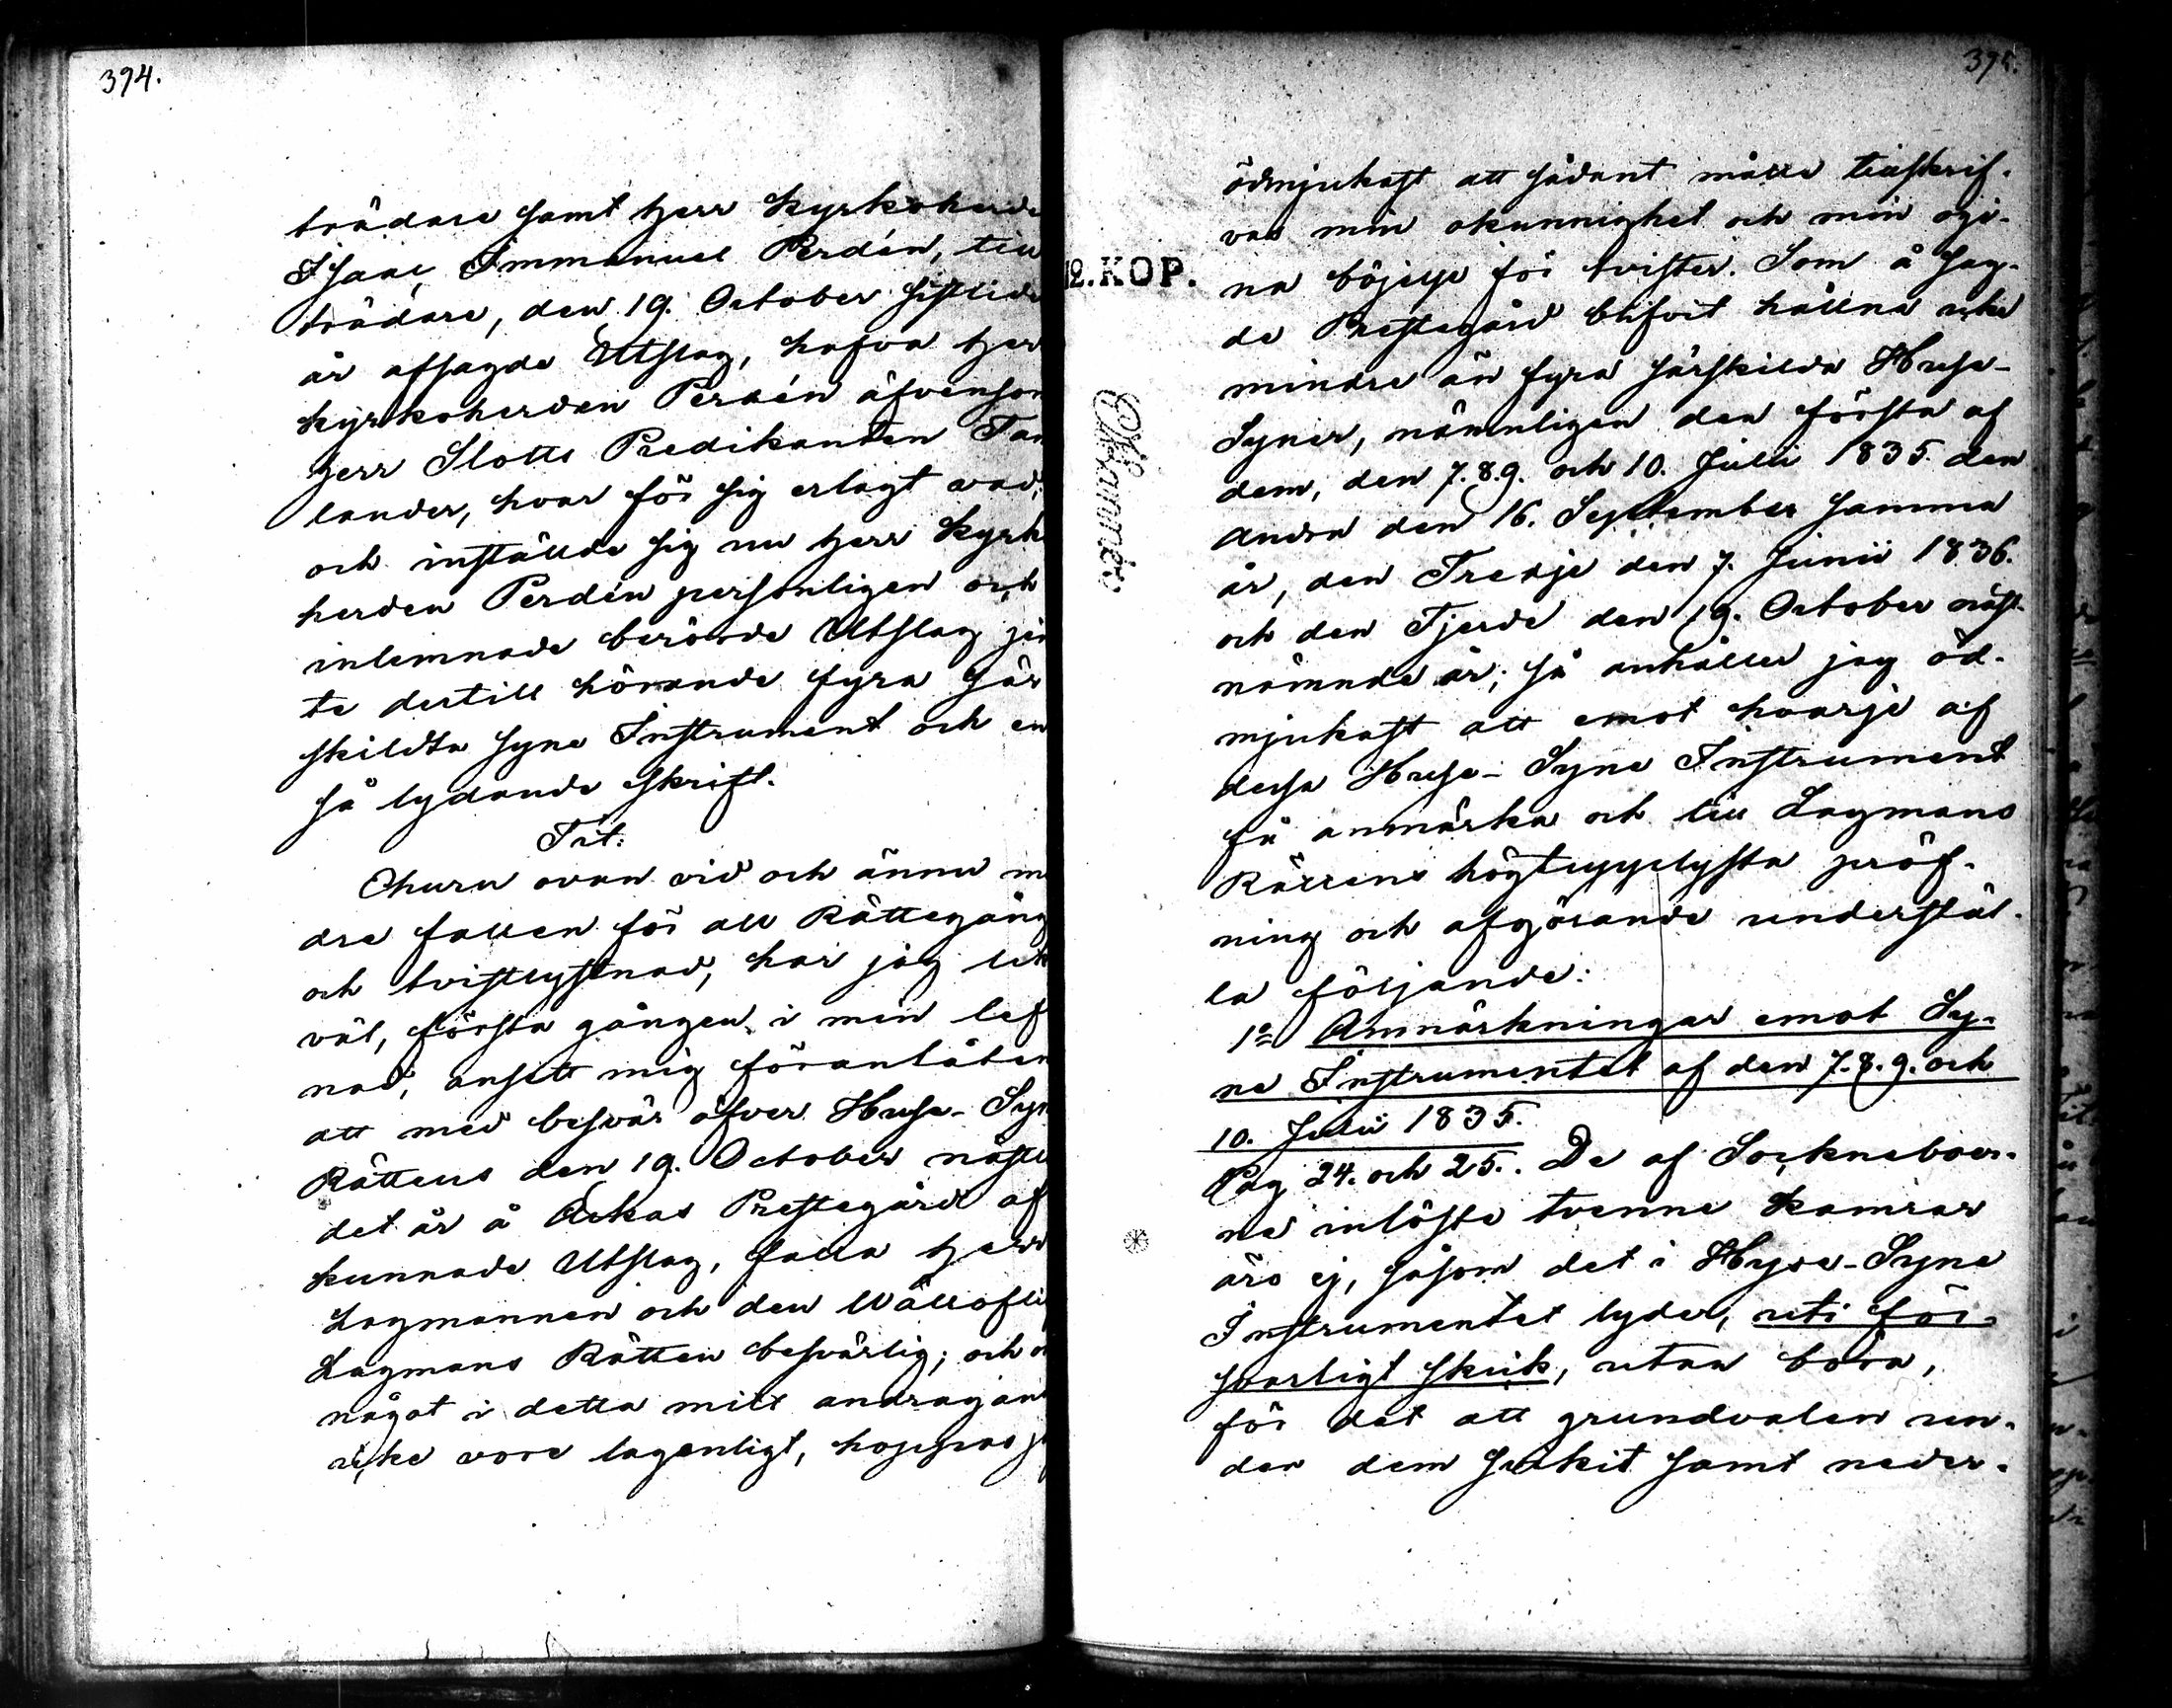 394.
trädare samt herr Kyrkoherde
Isaac Immanuel Perdén, till
trädare, den 19. October sistlide
år afsagde Utslag, hafva herr
Kyrkoherden Perdén äfvenson
herr Slotts Predikanten Tan
lander, hvar för sig erlagt vad;
och inställde sig nu herr Kyrk
herden Perdén personligen och
inlemnade berörde Utslag jem
te dertill hörande fyra sär
skildta syne Instrument och en
så lydande skrift.
Tit:
Ehuru ovan vid och ännu min
dre fallen för all Rättegång
och tvistlystnad, har jag lik
väl, första gången i min lef
nad, ansett mig föranlåten
att med besvär öfver Huse-Syn
Rättens den 19. October nästl
det år å Ackas Prestegård af
kunnade Utslag, falla herr
Lagmannen och den Wällofli
Lagmans Rätten besvärlig; och o
något i detta mitt andragan
icke vore lagenligt, hoppas j
395.
ödmjukast att sådant måtte tillskrif-
vas min okunnighet och min ogi-
na böjelse för tvister. Som å sag-
de Prestegård blifvit hållna icke
mindre än fyra särskilda Huse-
Syner, nämnligen den första af
dem, den 7. 8. 9. och 10. Julii 1835 den
Andra den 16. September samma
år, den Tredje den 7. Junii 1836.
och den Fjerde den 19. October näst-
nämnde år; så anhåller jag öd-
mjukast att emot hvarje af
dessa Huse-Syne Instrument
få anmärka och till Lagmans
Rättens högtupplysta pröf-
ning och afgörande underställ-
la följande:
1º Anmärkningar emot Sy-
ne Instrumentet af den 7. 8. 9. och
10. Julii 1835.
Pag 24. och 25.. De af Sockneboer-
ne inlöste tvenne Kamrar
äro ej, såsom det i Huse-Syne
Instrumentet lyder, uti för-
svarligt skick, utan böra,
för det att grundvalen un-
der dem sjukit samt neder-
2.KOP.